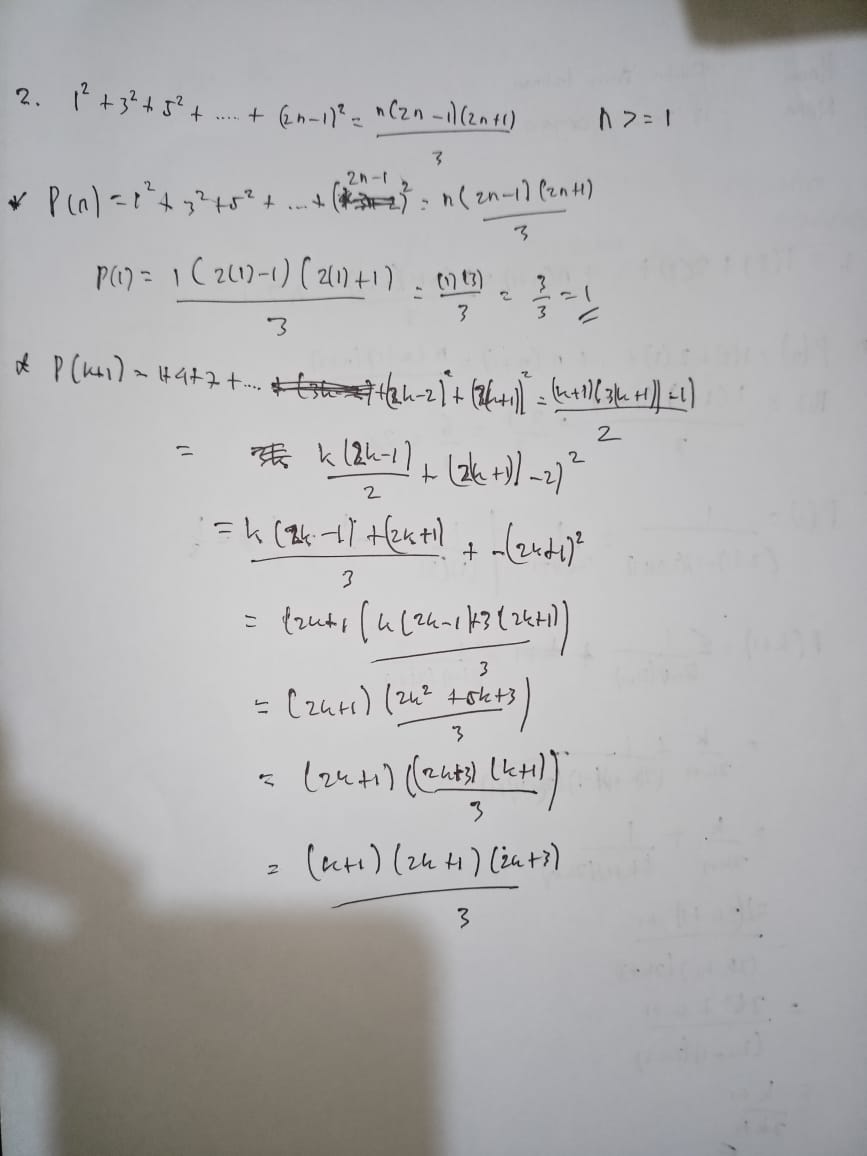 2. 1² + 3² + 5² + ..... + (2n-1)² = n(2n-1)(2n+1)/3 n >= 1
* P(n) = 1² + 3² + 5² + ... + (2n-1)² = n(2n-1)(2n+1)/3
P(1) = 1(2(1)-1)(2(1)+1)/3 = (1)(3)/3 = 3/3 = 1
* P(k+1) = 1+4+7+.... + (2k-2)² + (2(k+1))² = (k+1)(3(k+1)-1)/2
= k(2k-1)/2 + (2(k+1)-2)²
= k(2k-1)+(2k+1)/3 + -(2k+1)²
= (2k+1(k(2k-1)+3(2k+1))/3
= (2k+1)(2k²+5k+3/3)
= (2k+1)((2k+3)(k+1)/3)
= (k+1)(2k+1)(2k+3)/3